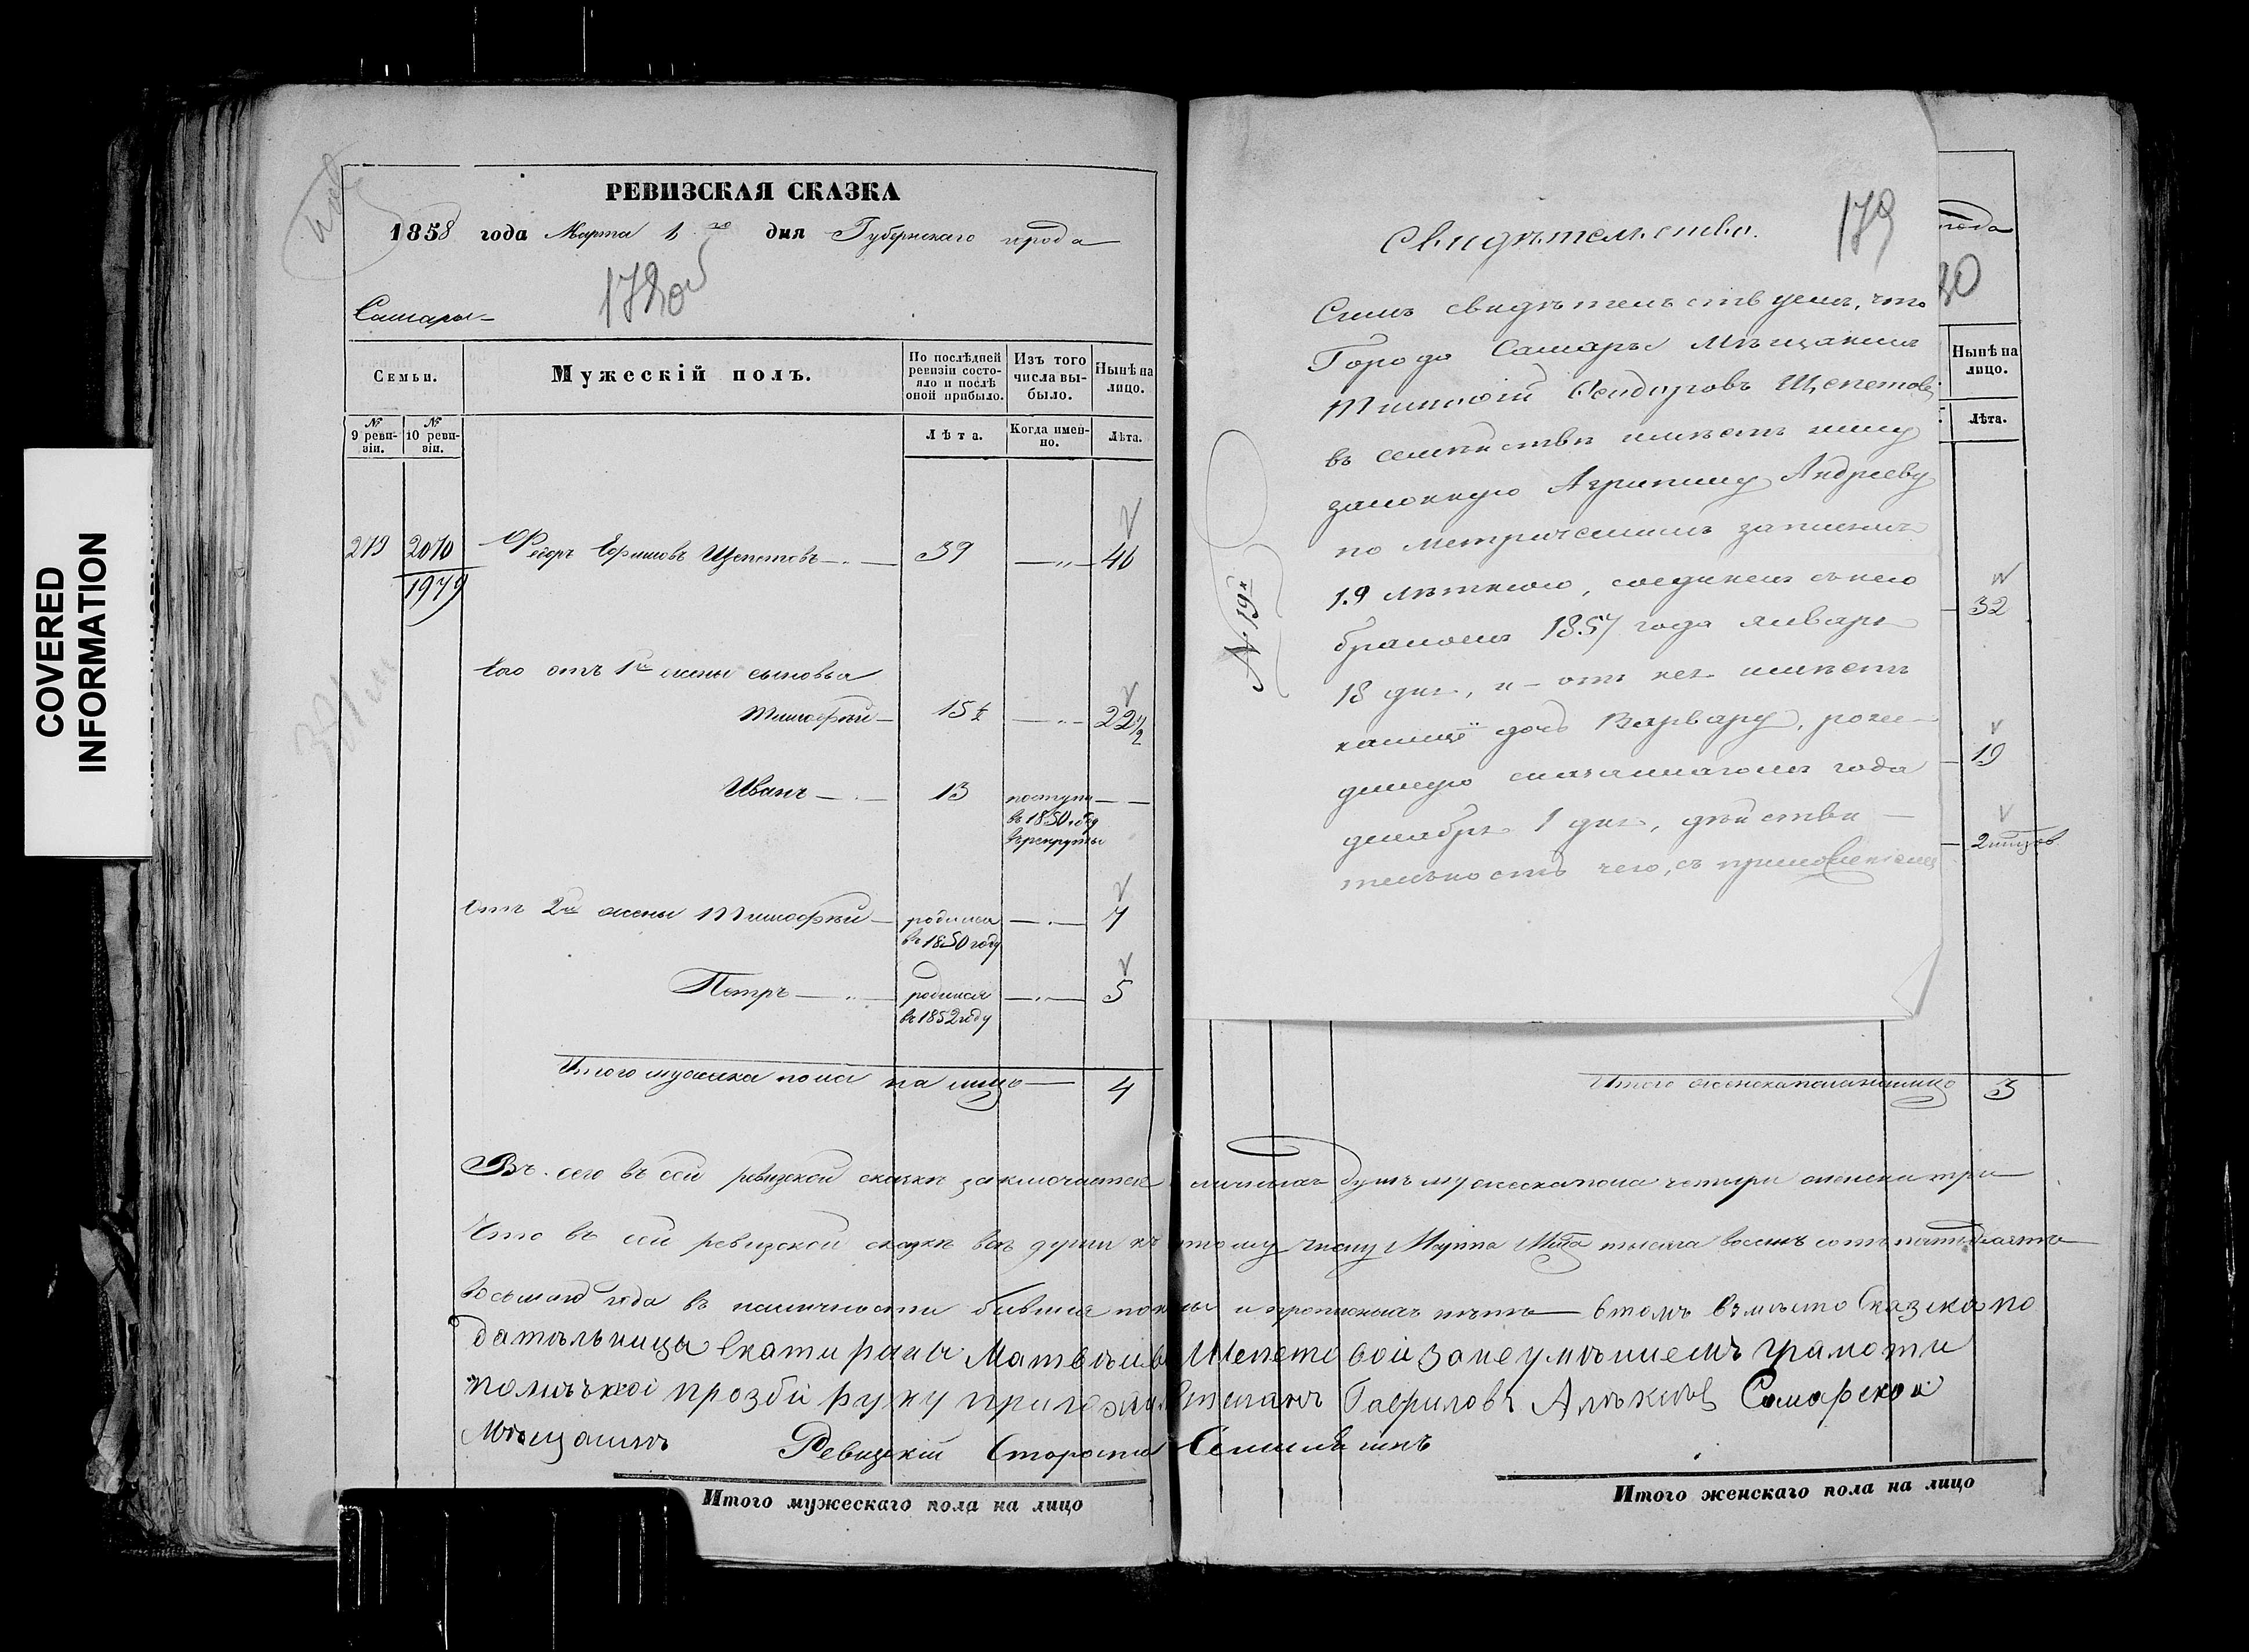 COVERED
INFORMATION
РЕВИЗСКАЯ СКАЗКА
1858 года Марта 1го дня Губернскаго города
178об
Самары
Семьи.
Мужескій полъ.
По послѣдней ревизіи состояло и послѣ оной прибыло.
Изъ того числа выбыло.
Нынѣ на лицо.
№ 9 ревизіи.
№ 10 ревизіи.
Лѣта.
Когда именно.
Лѣта.
279 2070 Ѳедоръ Ефимовъ Щепетовъ 39 40
1979
Его отъ 1й жены сыновья
Тимофей 15½ 22½
Иванъ 13 поступи
въ 1850 году
въ рекруты
Отъ 2й жены Тимофѣй родился 7
въ 1850 году
Петръ родился 5
въ 1852 году
Итого мужеска пола на лицо 4
Свидѣтельство.
179
№ 19й
Симъ свидѣтельствуемъ, что
Города Самары мѣщанинъ
Тимофѣй Ѳедоровъ Щепетовъ
въ семействѣ имѣетъ жену
законную Агрипину Андрееву
по метрическимъ запискамъ
19 лѣтнюю, соединенъ съ нею
бракомъ 1857 года января
18 дня, и отъ нея имѣетъ
дочь Варвару, рож-
денную года
декабря 1 дня, действи-
тельность чего, съ приложеніемъ
года
80
Нынѣ на лицо.
Лѣта.
32
19
2 мѣсяцовъ
Итого женска пола налицо 3
Въ сего въ сей ревизской сказкѣ заключается наличныхъ душъ мужеска пола четыре женска три
Что въ сей ревизской сказкѣ всѣ души къ первому числу Марта мца тысяча восемь сотъ пятьдесятъ
восьмаго года въ наличности бывшія показаны и прописныхъ нѣтъ в томъ вместо сказкопо
датѣльница Екатирина Матвѣива Щепетовой занеумѣнiемъ грамоти
поличной прозби руку приложилъ Степанъ Гавриловъ Алѣксѣевъ Самарской
мѣщанинъ Ревизскій Староста
Итого мужескаго пола на лицо
Итого женскаго пола на лицо